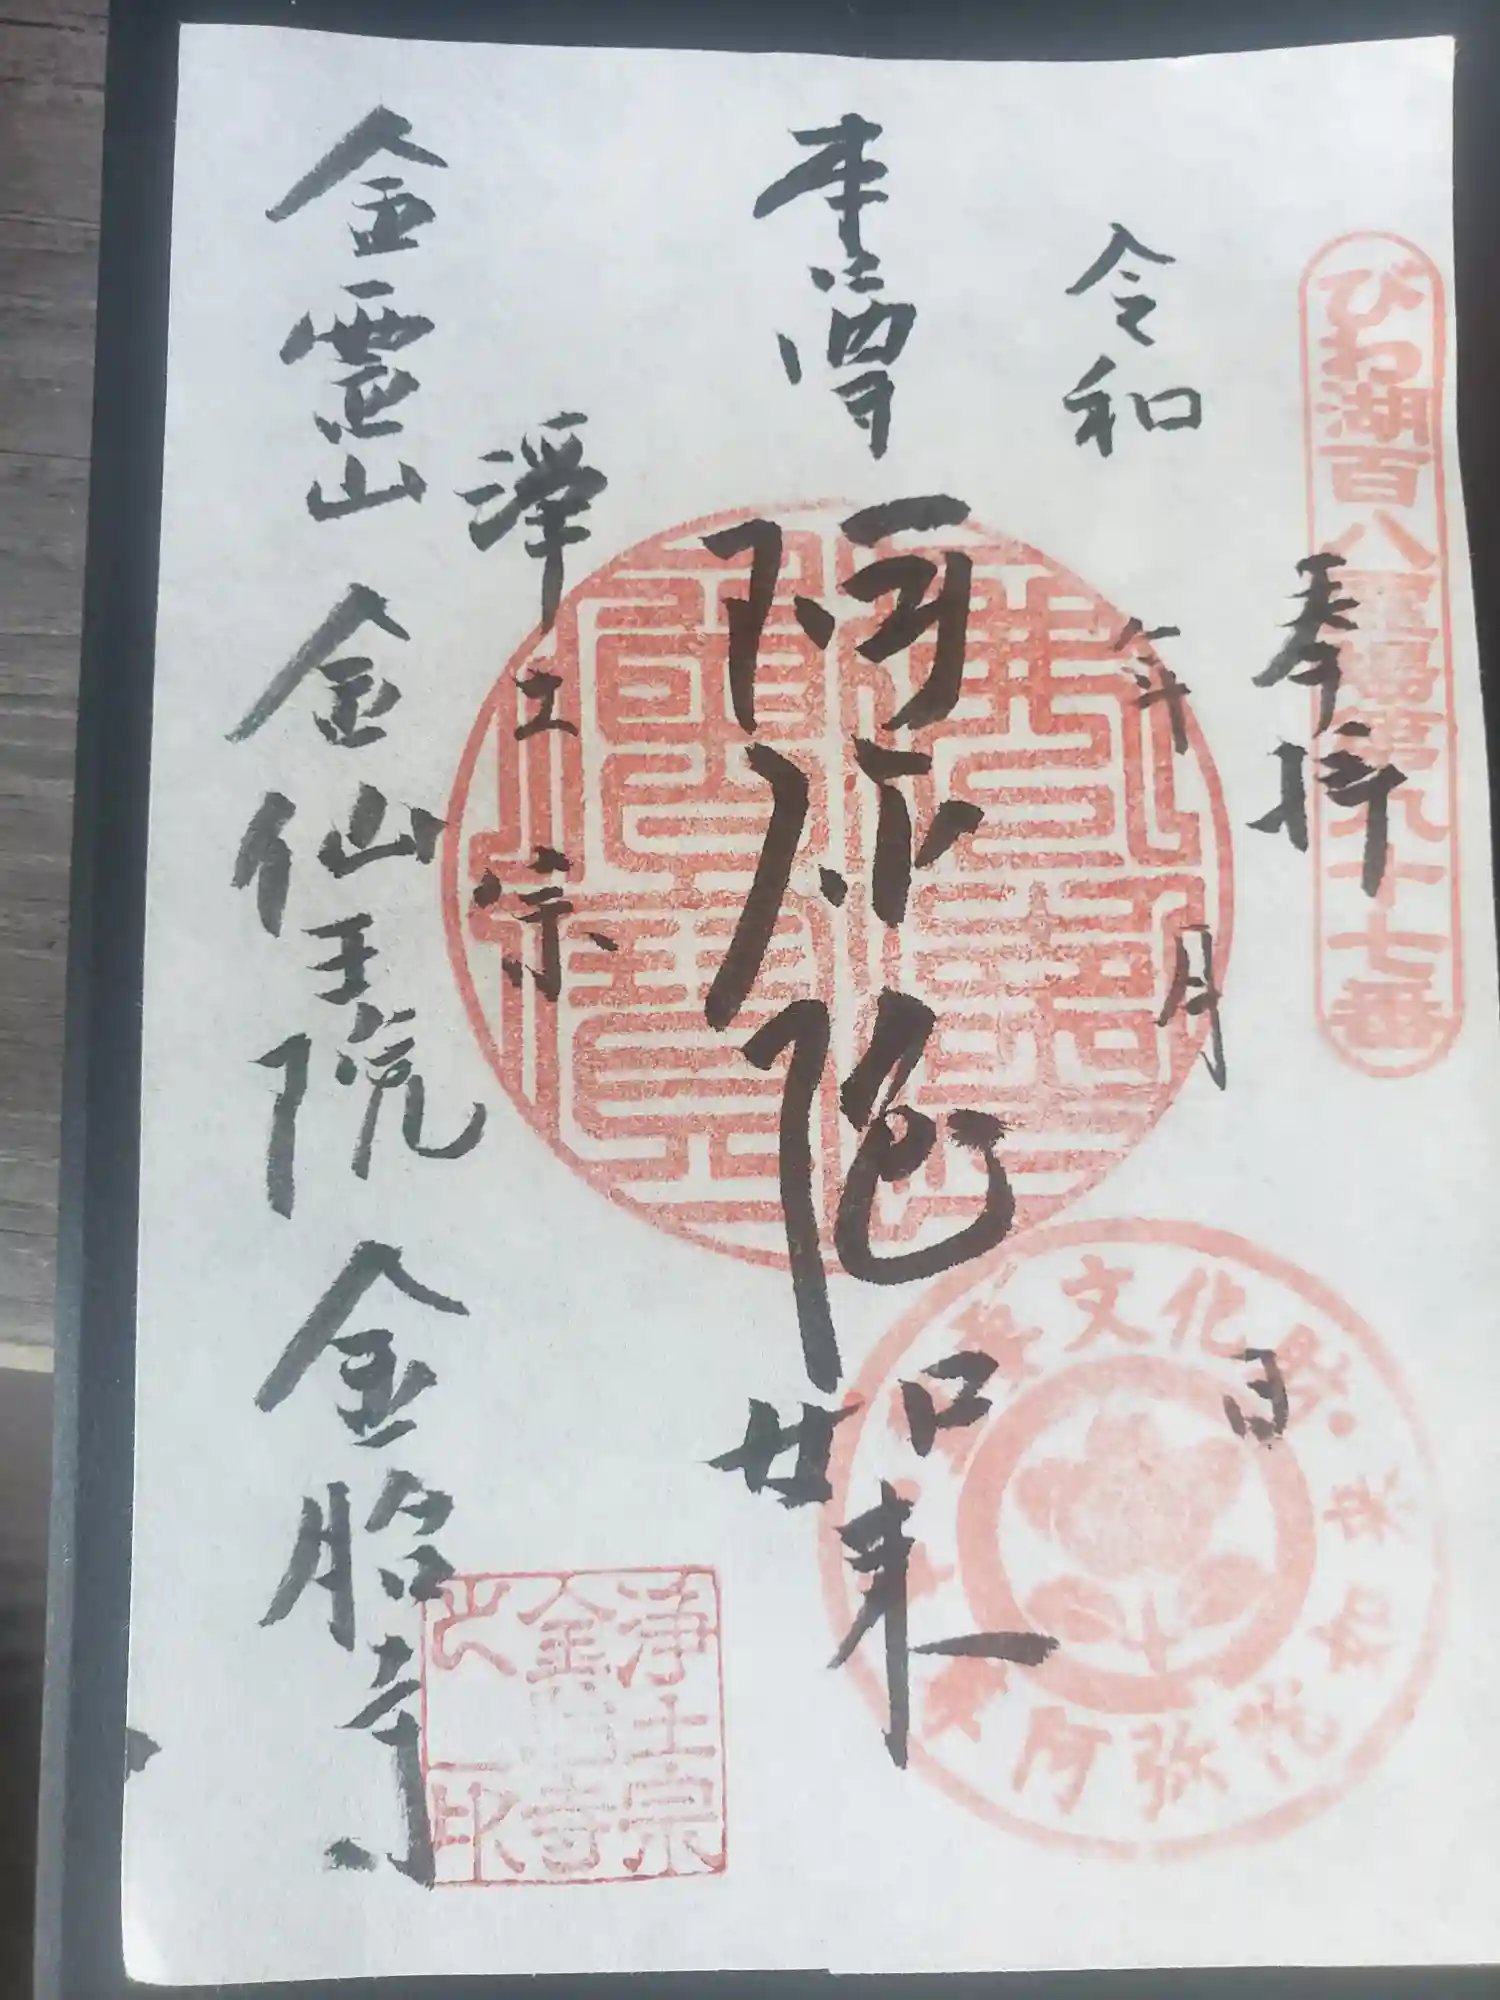 びわ湖百八霊場第九十七番
奉拝
令和 年 月 日
本尊
阿弥陀如来
浄土宗
金霊山 金仙王院 金胎寺
文化財
阿弥陀
浄土宗
金胎寺
之印